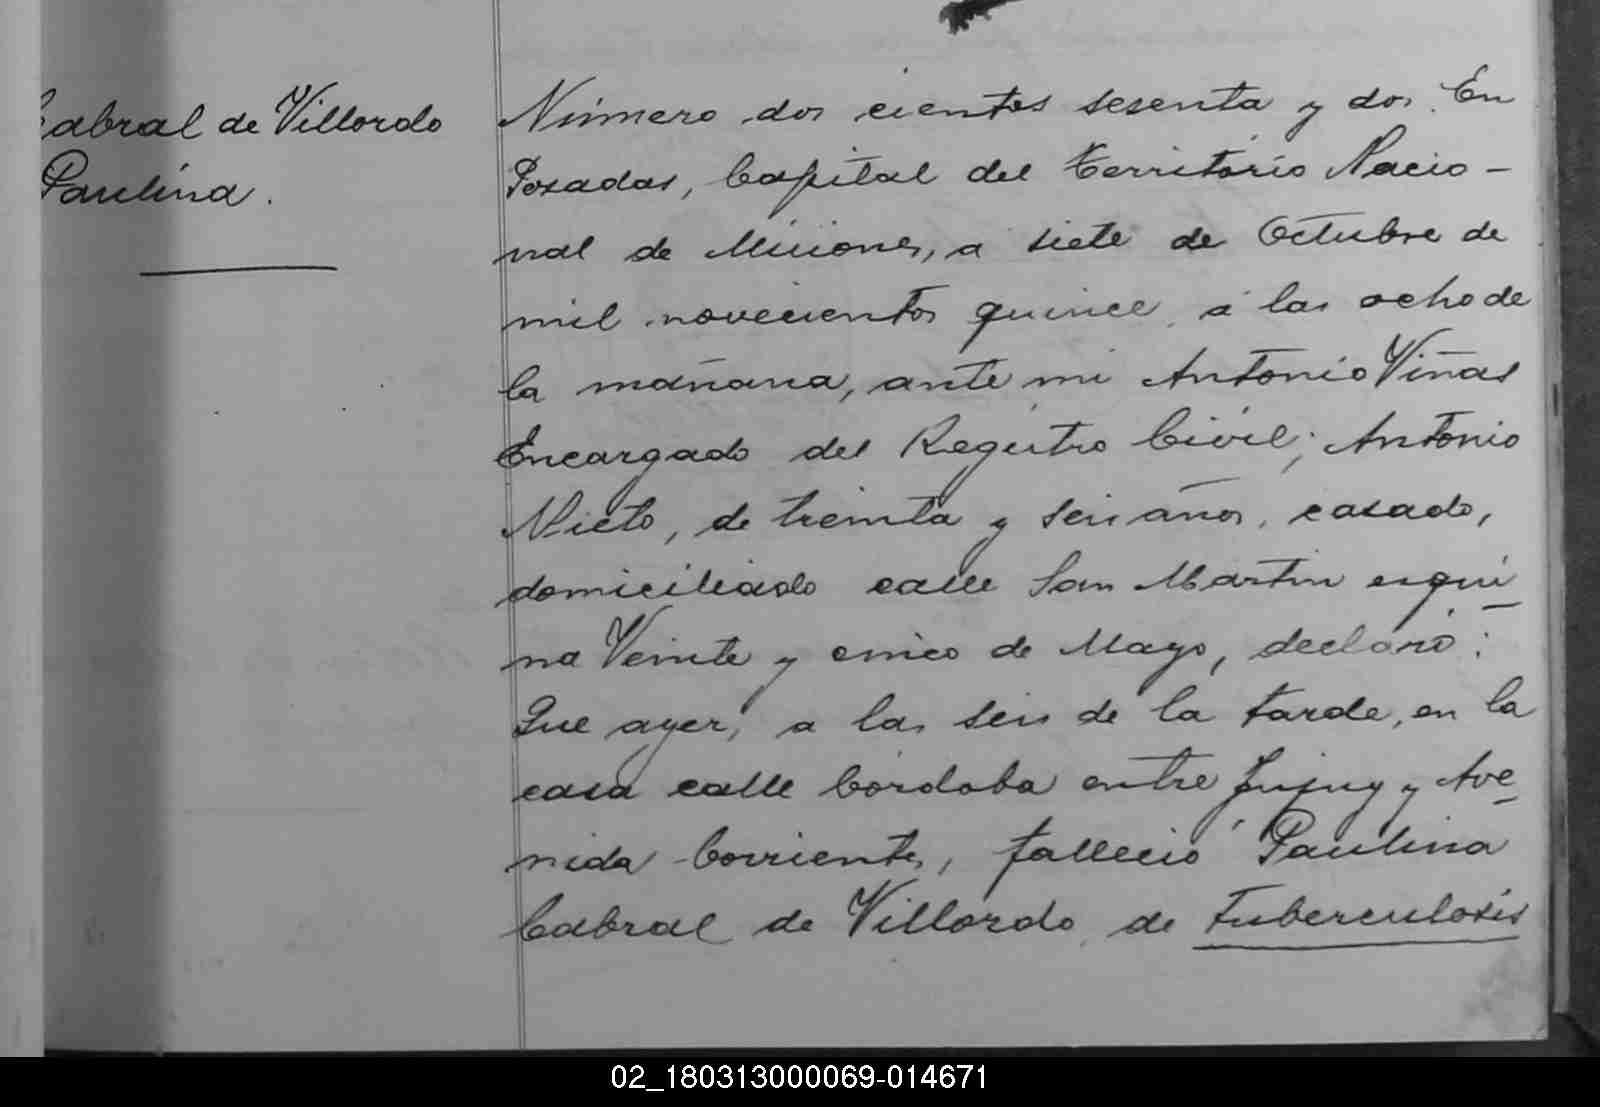 Cabral de Villordo
Paulina.
Número dos cientos sesenta y dos. En
Posadas, Capital del Territorio Nacio-
nal de Misiones, a siete de Octubre de
mil novecientos quince, á las ocho de
la mañana, ante mi Antonio Viñas
Encargado del Registro Civil; Antonio
Nieto, de treinta y seis años, casado,
domiciliado calle San Martin esqui-
na Veinte y cinco de Mayo, declaró:
Que ayer, a las seis de la tarde, en la
casa calle Córdoba entre Jujuy y Ave-
nida Corrientes, falleció Paulina
Cabral de Villordo, de tuberculosis
02_180313000069-014671